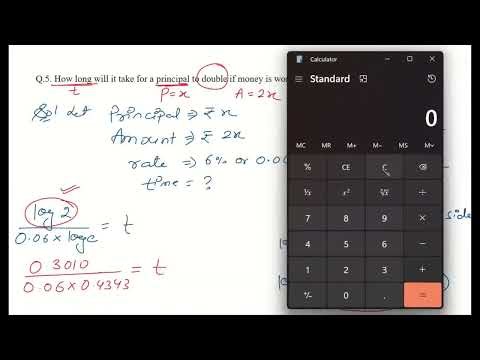 Q.5. How long will it take for a principal to double if money is wor
t P=x A=2x
Sol let Principal ⇒ ₹ x
Amount ⇒ ₹ 2x
rate ⇒ 6% or 0.0
time = ?
log 2 / 0.06 × loge = t
0.3010 / 0.06 × 0.4343 = t
side
Calculator
Standard
0
MC MR M+ M− MS
% CE C
¹/x x² ²√x ÷
7 8 9 ×
4 5 6 −
1 2 3 +
+/− 0 . =